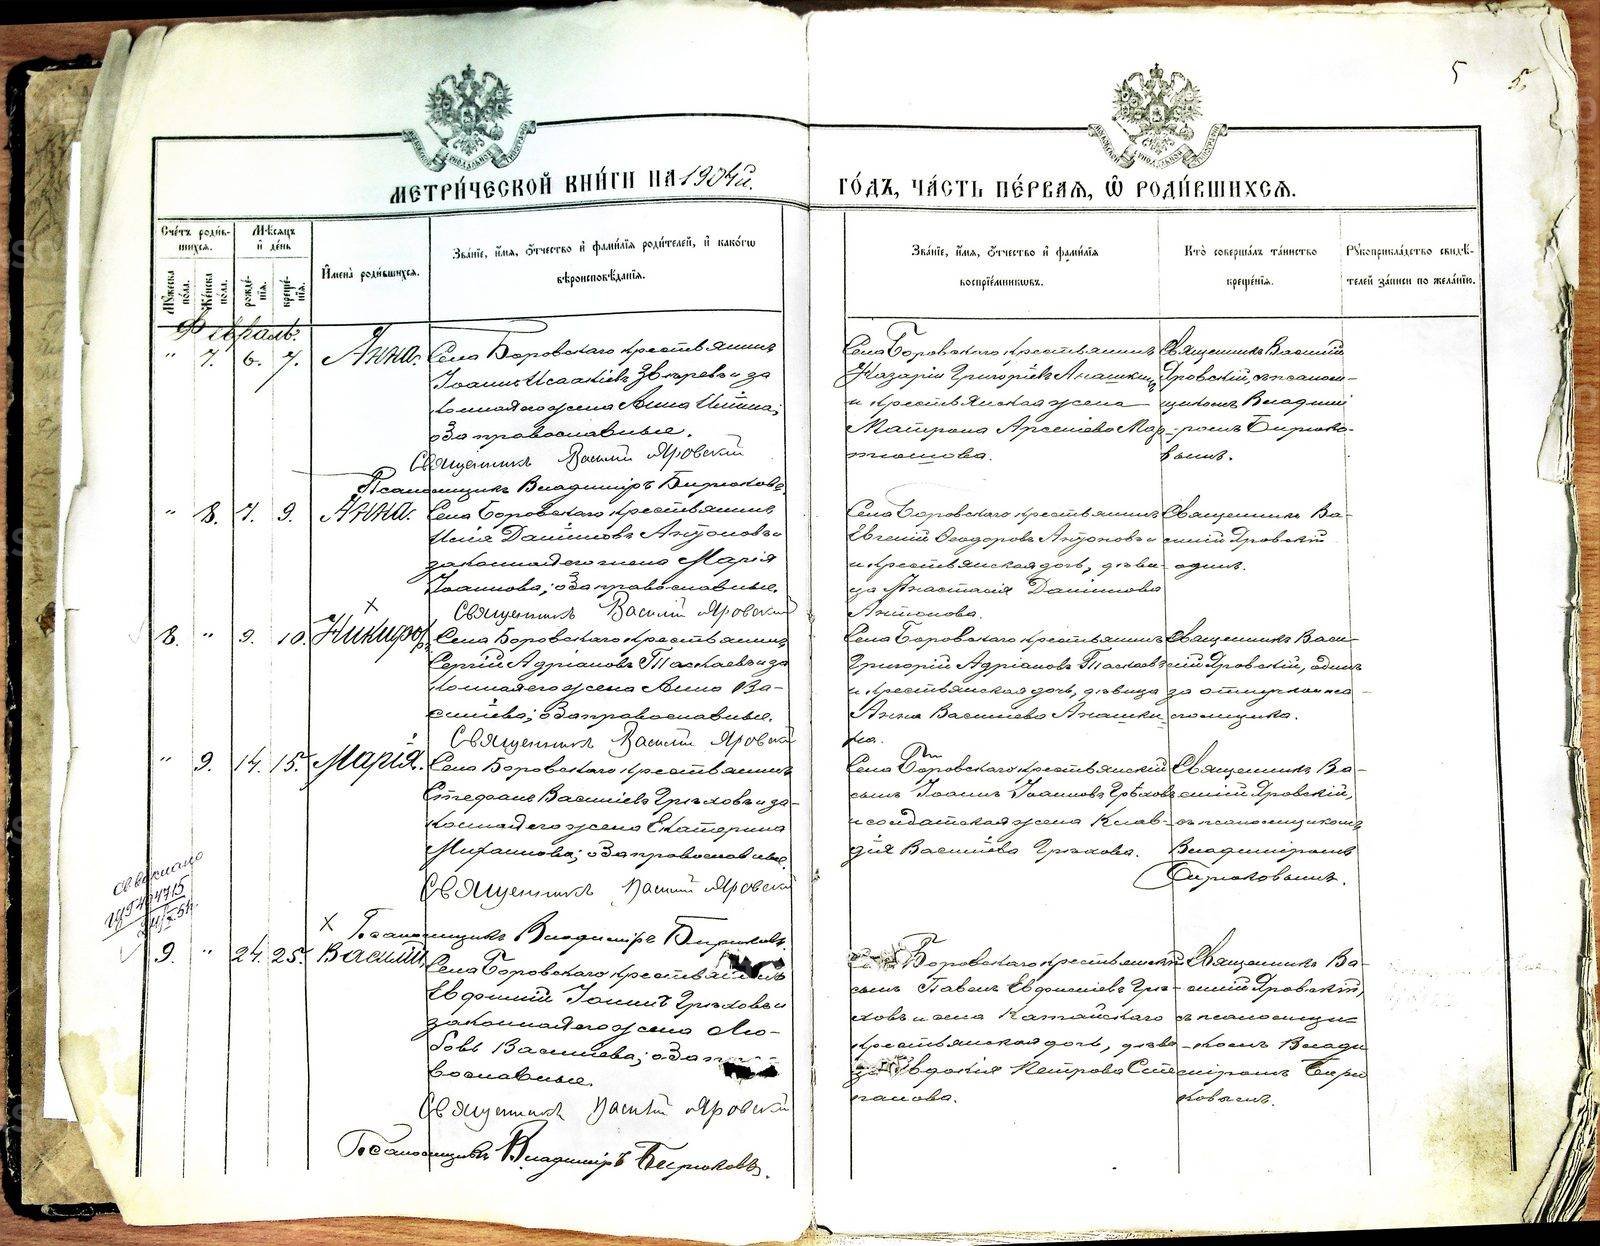 5 5.
МЕТРИ́ЧЕСКОЙ КНИ́ГИ НА 1904й. ГО́ДЪ, ЧА́СТЬ ПЕ́РВАЯ, Ѿ РОДИ́ВШИХСЯ.
Сче́тъ роди́в-
шихся.
Мѣ́сяцъ
и҆ де́нь
Мꙋ́жеска по́ла.
Же́нска по́ла.
рожде́-
нїя.
креще́-
нїя.
И҆мена̀ роди́вшихся.
Зва́нїе, и҆́мя, ѻ҆́тчество и҆ фами́лїя роди́телей, и҆ како́гѡ
вѣроисповѣ́данїя.
Зва́нїе, и҆́мя, ѻ҆́тчество и҆ фами́лїя
воспрїе́мникѡвъ.
Кто̀ соверша́лъ та́инство
креще́нїя.
Рꙋкоприкла́дство свидѣ́-
телей за́писи по жела́нїю.
Февраль.
" 7. 6. 7. Анна.
Села Боровскаго крестьянинъ
Іоаннъ Исаакіевъ Звѣревъ и за
конная его жена Анна
оба православные.
Священникъ Василій Яровскій
Псаломщикъ Владиміръ Бирюковъ.
Села Боровскаго крестьянинъ
Назарій Григоріевъ Анашкинъ
и крестьянская жена
Матрона Арсеніева Мар-
тюшова.
Священникъ Василій
Яровскій, съ псалом-
щикомъ Владимі
-ромъ Бирюко-
вымъ.
" 8. 7. 9. Анна.
Села Боровскаго крестьянинъ
Илія Даніиловъ Антоновъ и
законная его жена Марія
Іоаннова; оба православные.
Священникъ Василій Яровскій
Села Боровскаго крестьянинъ
Евгеній Ѳеодоровъ Антоновъ и
и крестьянская дочь, дѣви-
ца Анастасія Даніилова
Антонова.
Священникъ Ва-
силій Яровскій
одинъ.
8. " 9. 10. Никифоръ
Села Боровскаго крестьянинъ
Сергій Адріановъ Таскаевъ и за
конная его жена Анна Ва-
силіева; оба православные.
Священникъ Василій Яровскій
Села Боровскаго крестьянинъ
Григорій Адріановъ Таскаевъ
и крестьянская дочь, дѣвица
Анна Василіева Анашки-
на.
Священникъ Васи-
лій Яровскій, одинъ
за отлучкою пса-
ломщика.
" 9. 14. 15. Марія.
Села Боровскаго крестьянинъ
Стефанъ Василіевъ Грѣховъ и за-
конная его жена Екатерина
Михаилова; оба православные.
Священникъ Василій Яровскій
Псаломщикъ Владиміръ Бирюковъ.
Села Боровскаго крестьянскій
сынъ Іоаннъ Іоанновъ Грѣховъ
и солдатская жена Клав-
дія Василіева Грѣхова.
Священникъ Ва-
силій Яровскій,
съ псаломщикомъ
Владиміромъ
Бирюковымъ.
9. " 24. 25. Василій,
Села Боровскаго крестьянинъ
Евфимій Іоанновъ Грѣховъ и
законная его жена Лю-
бовь Василіева; оба пра-
вославные.
Священникъ Василій Яровскій
Псаломщикъ Владиміръ Бирюковъ.
Боровскаго крестьянскій
сынъ Павелъ Евфиміевъ Грѣ-
ховъ и села Катайскаго
крестьянская дочь, дѣви-
ца Евдокія Петрова Сте-
панова.
Священникъ Ва-
силій Яровскій,
съ псаломщи-
комъ Влади
міромъ Бирю
ковымъ.